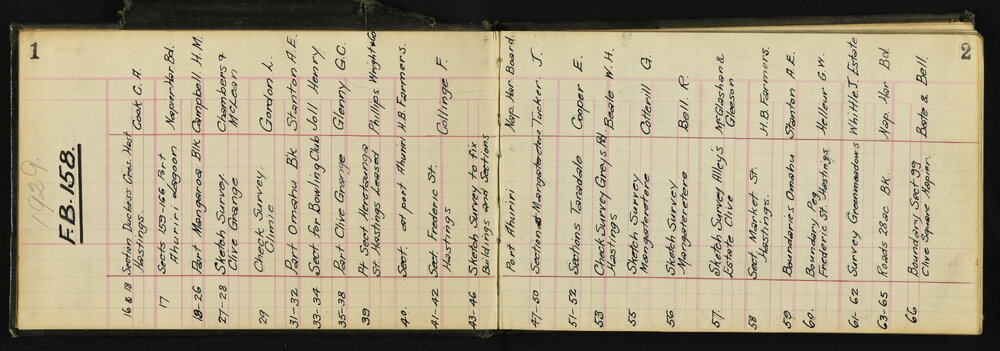 1
1929.
F.B. 158.
16 & 18 Section Duchess Cres. Hast Cook C. A.
Hastings.
17 Sects 159-166 Part Napier Har. Bd.
Ahuriri Lagoon
18-26 Part Mangaroa Blk Campbell H. M.
27-28 Sketch Survey Chambers &
Clive Grange McLean
29 Check Survey Gordon L.
Clinie
31-32 Part Omahu Bk Stanton A. E.
33-34 Sect for Bowling Club Joll Henry
35-38 Part Clive Grange Glenny G.C.
39 Pt Sect Heretaunga Phillips Wright & Co
St. Hastings Leased
40. Sect. at port Ahuriri H.B. Farmers.
41-42 Sect. Frederic St. Collinge F.
Hastings
43-46 Sketch Survey to fix
Buildings and Sections
2
Port Ahuriri Nap. Har. Board
47-50 Section at Mangateretere Tucker J.
51-52 Sections Taradale Cooper E.
53 Check Survey Greys Rd Beale W. H.
Hastings
55 Sketch Survey Cotterill G.
Mangateretere
56 Sketch Survey Bell R.
Mangateretere
57. Sketch Survey Alley's McGlashan &
Estate Clive Gleeson.
58 Sect. Market St H.B. Farmers.
Hastings.
59 Boundaries Omahu Stanton A.E.
60. Boundary Peg Helleur G.W.
Frederic St. Hastings
61-62 Survey Greenmeadows Whittle J. Estate
63-65 Roads 28ac BK Nap. Har Bd
66 Boundary Sect 99 Bate & Bell.
Clive Square Napier.